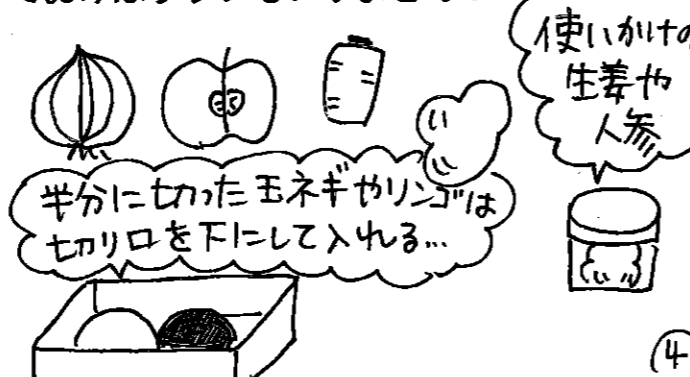 使いかけの
生姜や
人参
半分に切った玉ネギやリンゴは
切り口を下にして入れる…
④